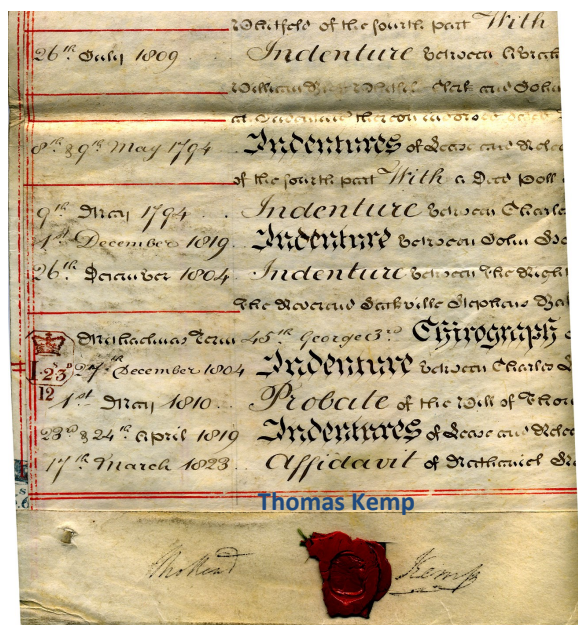 Whitfeld of the fourth part With
26th July 1809 Indenture between
William Clerk and John
at
8th & 9th May 1794 Indentures of Lease and Relea
of the fourth part With a Deed Poll
9th May 1794 Indenture between Charles
1st December 1819 Indenture between John
26th December 1804 Indenture between The Right
The Reverend Sackville Stephens Bal
Michaelmas Term 45th George 3rd Chirograph
27th December 1804 Indenture between Charles
L.23
12
1st May 1810 Probate of the Will of Thom
23rd & 24th April 1819 Indentures of Lease and Relea
17th March 1823 Affidavit of Nathaniel
Thomas Kemp
Kemp